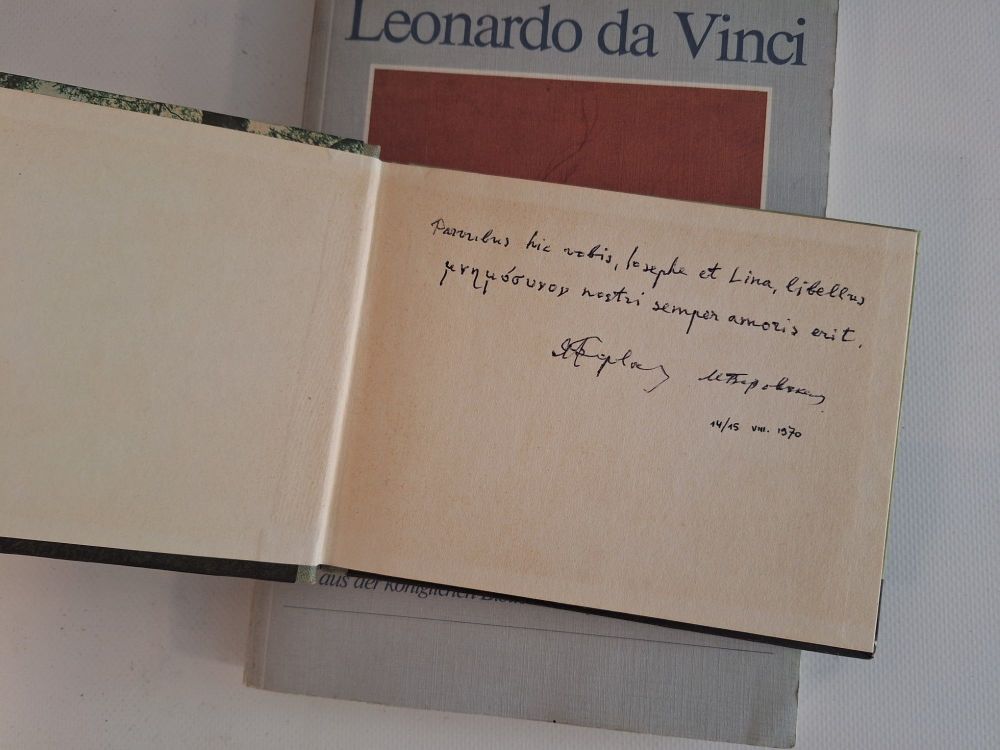 Leonardo da Vinci
hic vobis, Iosephe et Lina, libellus
μνημόσυνον nostri semper amoris erit.
14/15 VIII. 1970
aus der Königlichen